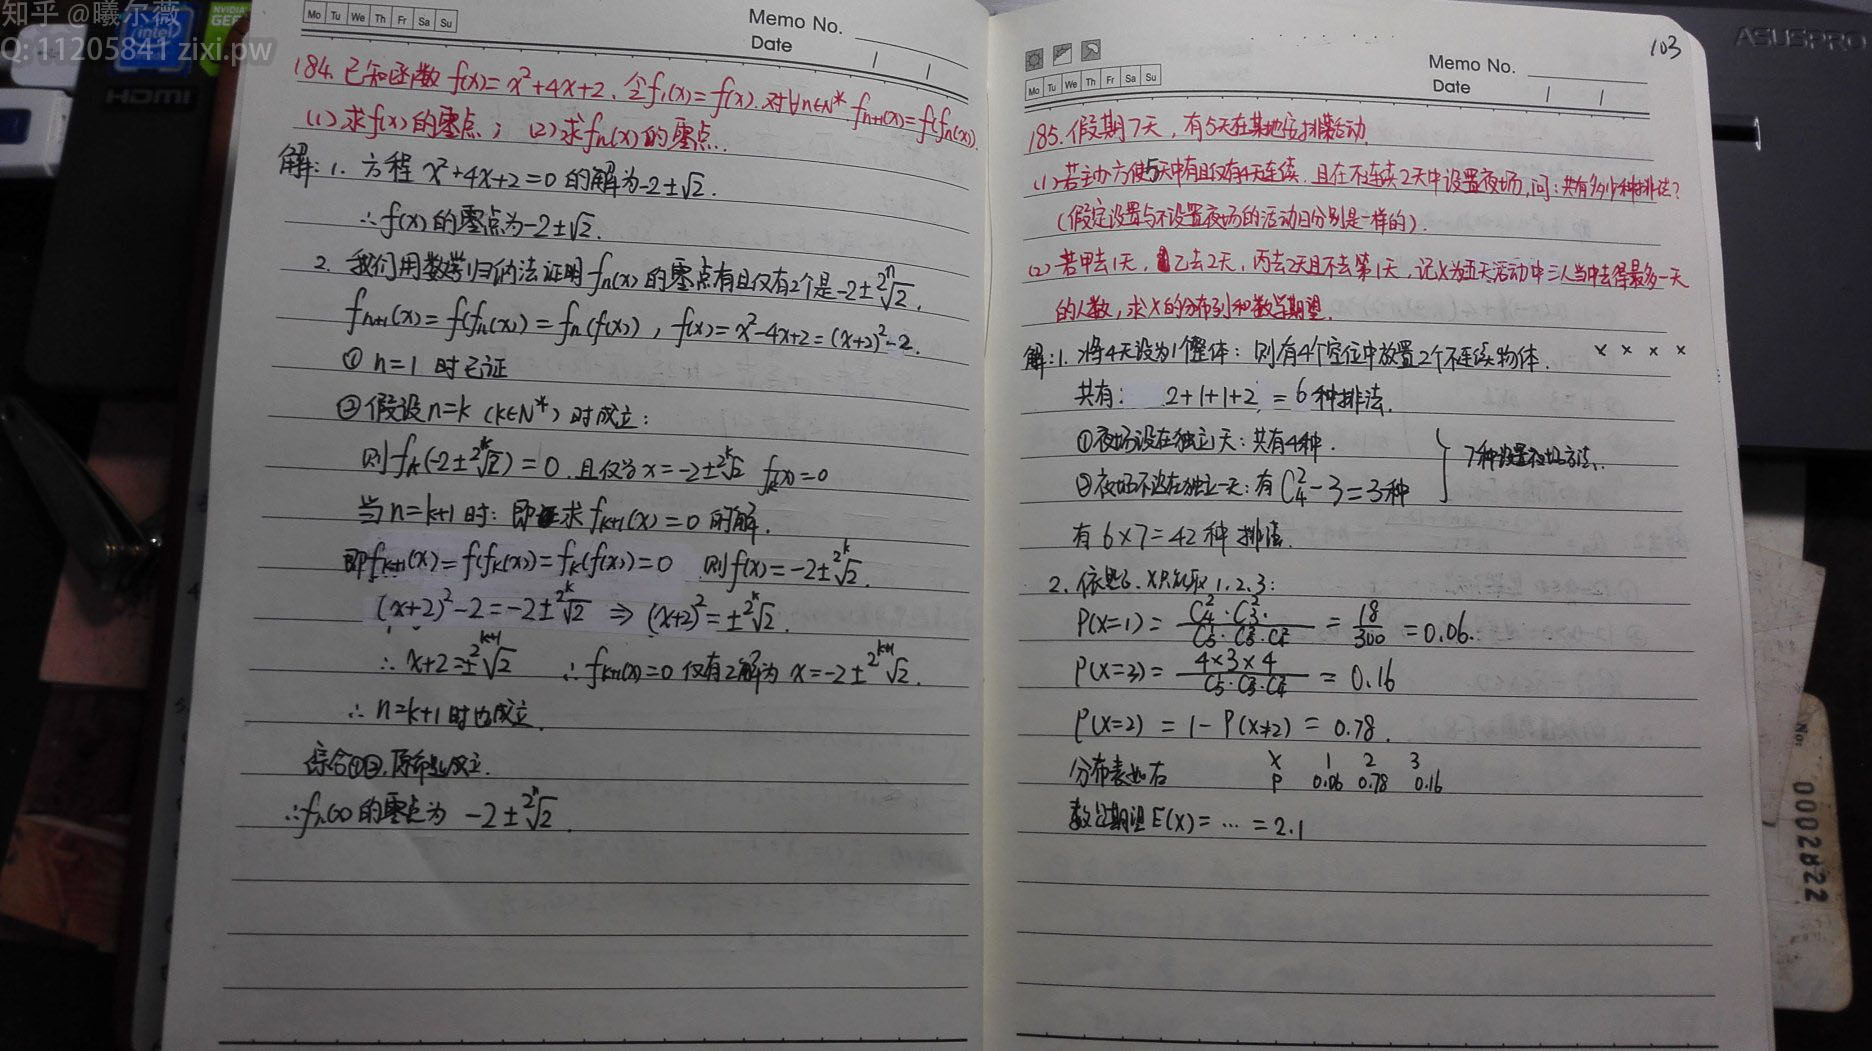 知乎 @曦尔薇
Q: 11205841 zixi.pw
intel
NVIDIA
HDMI
Mo Tu We Th Fr Sa Su
Memo No.
Date
184. 已知函数 f(x)=x²+4x+2. 令f₁(x)=f(x). 对∀n∈N* fₙ₊₁(x)=f(fₙ(x)).
(1) 求f(x)的零点; (2) 求fₙ(x)的零点.
解: 1. 方程 x²+4x+2=0 的解为-2±√2.
∴ f(x)的零点为-2±√2.
2. 我们用数学归纳法证明 fₙ(x)的零点有且仅有2个是 -2±^{2^n}√2.
fₙ₊₁(x)=f(fₙ(x))=fₙ(f(x)), f(x)=x²-4x+2=(x+2)²-2.
① n=1 时已证
② 假设n=k (k∈N*) 时成立:
则 f_k(-2±^{2^k}√2)=0. 且仅当 x=-2±^{2^k}√2 f_k(x)=0
当 n=k+1时: 即求 f_{k+1}(x)=0 的解.
即f_{k+1}(x)=f(f_k(x))=f_k(f(x))=0 则f(x)=-2±^{2^k}√2.
(x+2)²-2=-2±^{2^k}√2 ⇒ (x+2)²=±^{2^k}√2.
∴ x+2=±^{2^{k+1}}√2 ∴ f_{k+1}(x)=0 仅有2解为 x=-2±^{2^{k+1}}√2.
∴ n=k+1 时也成立
综合①②, 原命题成立.
∴fₙ(x)的零点为 -2±^{2^n}√2.
103
ASUSPRO
Mo Tu We Th Fr Sa Su
Memo No.
Date
185. 假期7天, 有5天在某地安排活动.
(1) 若主办方使5天中有且仅有4天连续. 且在不连续2天中设置夜场, 问: 共有多少种排法?
(假定设置与不设置夜场的活动日分别是一样的).
(2) 若甲去1天, 乙去2天, 丙去2天且不去第1天, 记X为五天活动中三人当中去得最多一天
的人数, 求X的分布列和数学期望.
解: 1. 将4天设为1个整体: 则有4个空位中放置2个不连续物体. × × × ×
共有: 2+1+1+2 = 6种排法.
① 夜场设在独立1天: 共有4种.
② 夜场不设在独立一天: 有 C₄²-3=3种
7种设置夜场方法.
有 6×7=42 种排法.
2. 依题, X只能取 1.2.3:
P(X=1) = = 18/300 = 0.06.
P(X=3) = 4×3×4 = 0.16
P(X=2) = 1-P(X≠2) = 0.78.
分布表如右 X 1 2 3
P 0.06 0.78 0.16
数学期望 E(X)= … = 2.1
No:
0002822